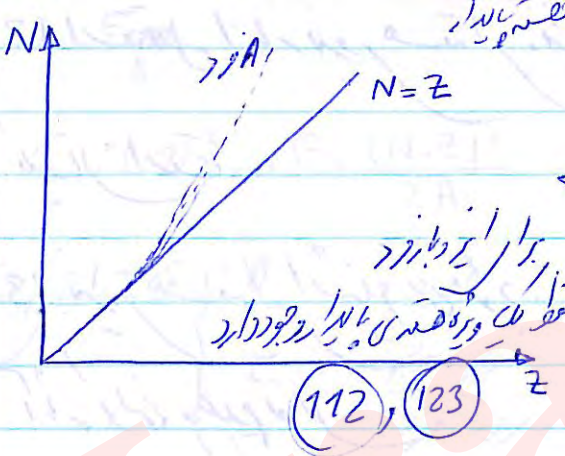 هسته پایدار
N
A فرد
N=Z
برای ایزوبار فرد
فقط یک ویژه هسته‌ی پایدار وجود دارد
Z
112 , 123